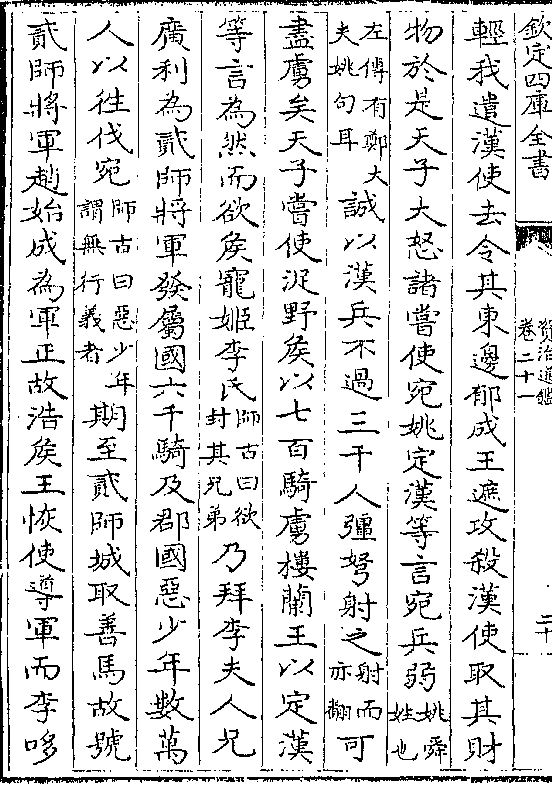 欽定四庫全書
資治通鑑
卷二十一
二十
輕我遣漢使去令其東邊郁成王遮攻殺漢使取其財
物於是天子大怒諸嘗使宛姚定漢等言宛兵弱姚舜姓也
左傳有鄭大夫姚句耳誠以漢兵不過三千人彊弩射之射而亦翻可
盡虜矣天子嘗使浞野侯以七百騎虜樓蘭王以定漢
等言為然而欲侯寵姬李氏師古曰欲封其兄弟乃拜李夫人兄
廣利為貳師將軍發屬國六千騎及郡國惡少年數萬
人以往伐宛師古曰惡少年謂無行義者期至貳師城取善馬故號
貳師將軍趙始成為軍正故浩侯王恢使導軍而李哆